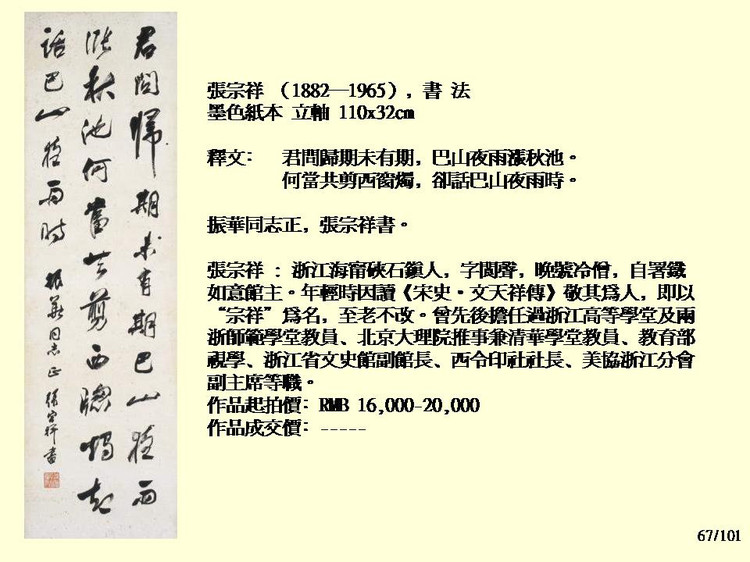 君問歸期未有期巴山夜雨
漲秋池何當共剪西牕燭却
話巴山夜雨時 振華同志正 張宗祥書
張宗祥 （1882—1965），書 法
墨色紙本 立軸 110x32cm
釋文： 君問歸期未有期，巴山夜雨漲秋池。
何當共剪西窗燭，卻話巴山夜雨時。
振華同志正，張宗祥書。
張宗祥 ：浙江海甯硤石鎮人，字閬聲，晚號冷僧，自署鐵
如意館主。年輕時因讀《宋史·文天祥傳》敬其爲人，即以
“宗祥”爲名，至老不改。曾先後擔任過浙江高等學堂及兩
浙師範學堂教員、北京大理院推事兼清華學堂教員、教育部
視學、浙江省文史館副館長、西令印社社長、美協浙江分會
副主席等職。
作品起拍價：RMB 16,000-20,000
作品成交價：-----
67/101